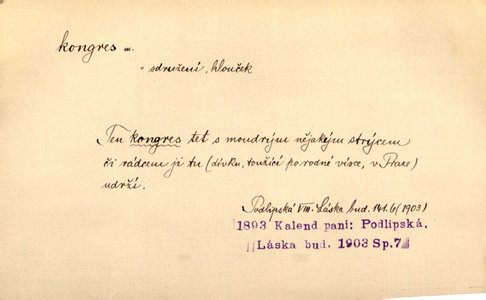 kongres m.
- sdružení, hlouček
Ten kongres tet s moudrým nějakým strýcem
či rádcem ji tu (dívku, toužící po rodné vísce, v Praze)
udrží.
Podlipská VIII. Láska bud. 141.6 (1903)
1893 Kalend paní: Podlipská,
Láska bud. 1903 Sp.7